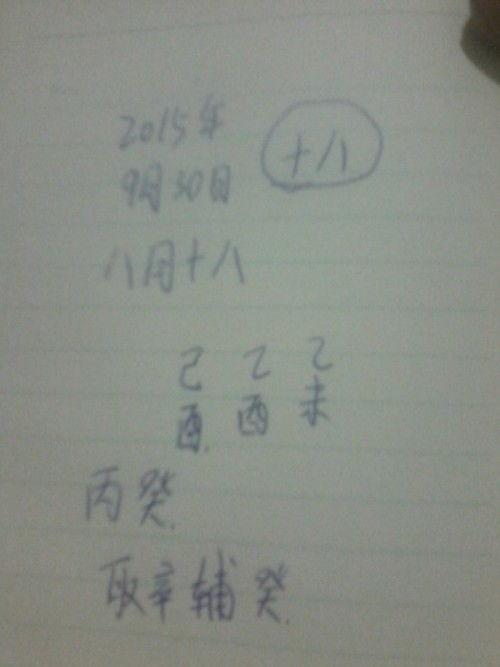 2015年
十八
9月30日
八月十八
己 乙 乙
酉. 酉 未
丙癸.
取辛辅癸.